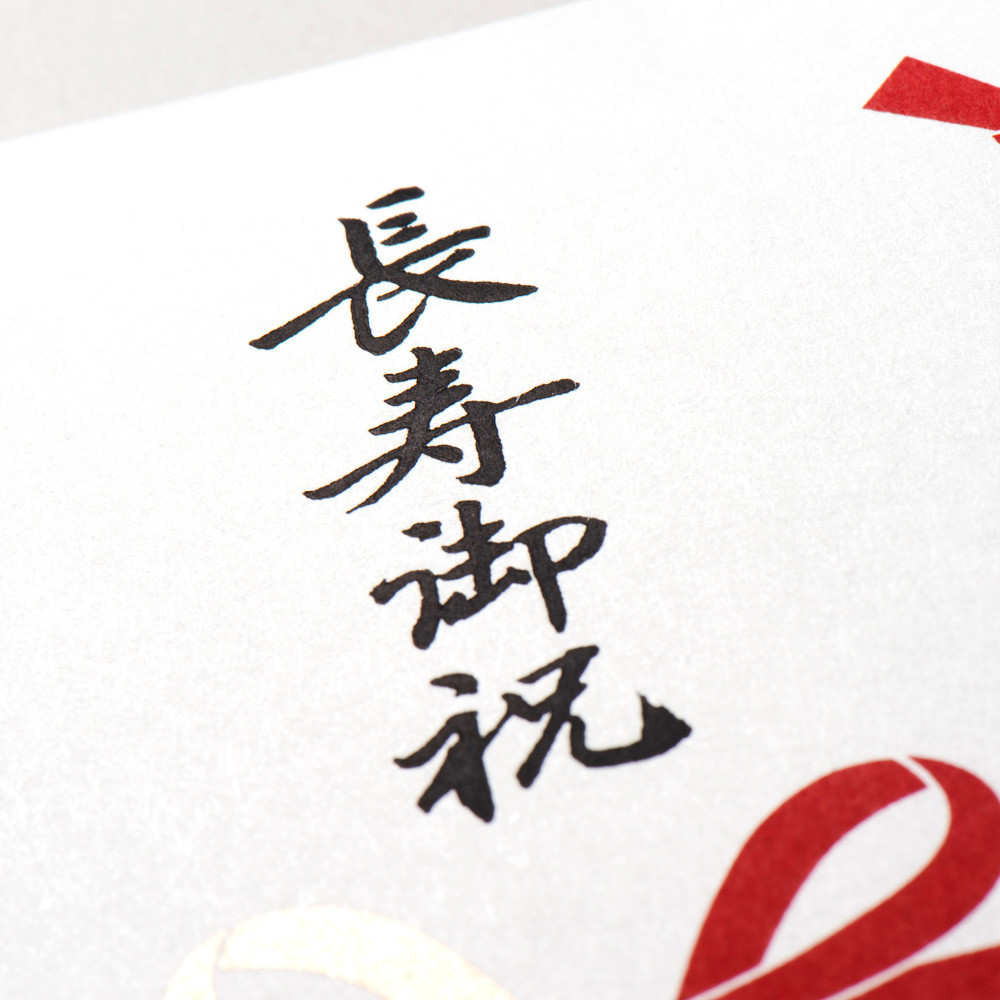 長寿御祝